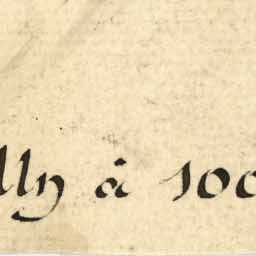 lly à 100